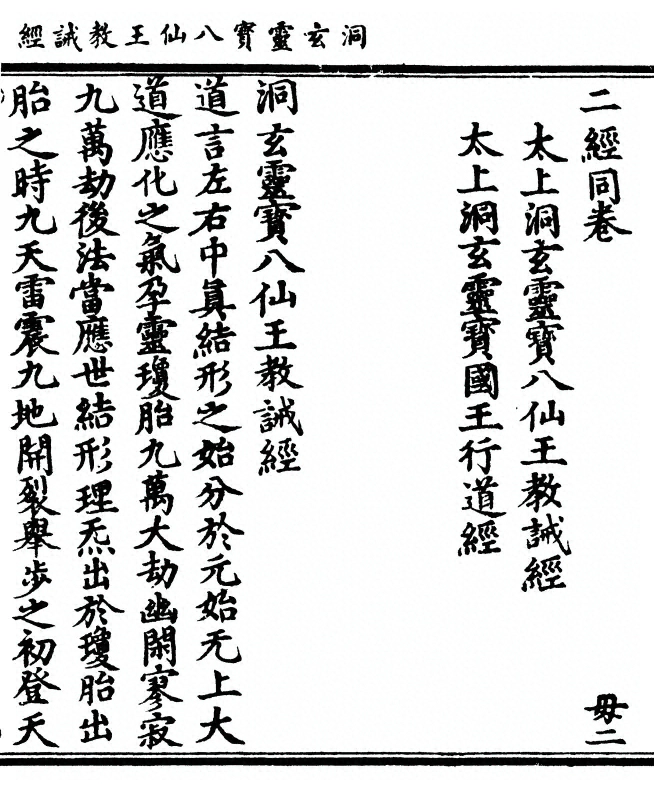 洞玄靈寶八仙王教誡經
二經同卷 毋二
太上洞玄靈寶八仙王教誡經
太上洞玄靈寶國王行道經
洞玄靈寶八仙王教誡經
道言左右中真結形之始分於元始无上大
道應化之氣孕靈瓊胎九萬大劫幽閑寥寂
九萬劫後法當應世結形理炁出於瓊胎出
胎之時九天雷震九地開裂舉步之初登天